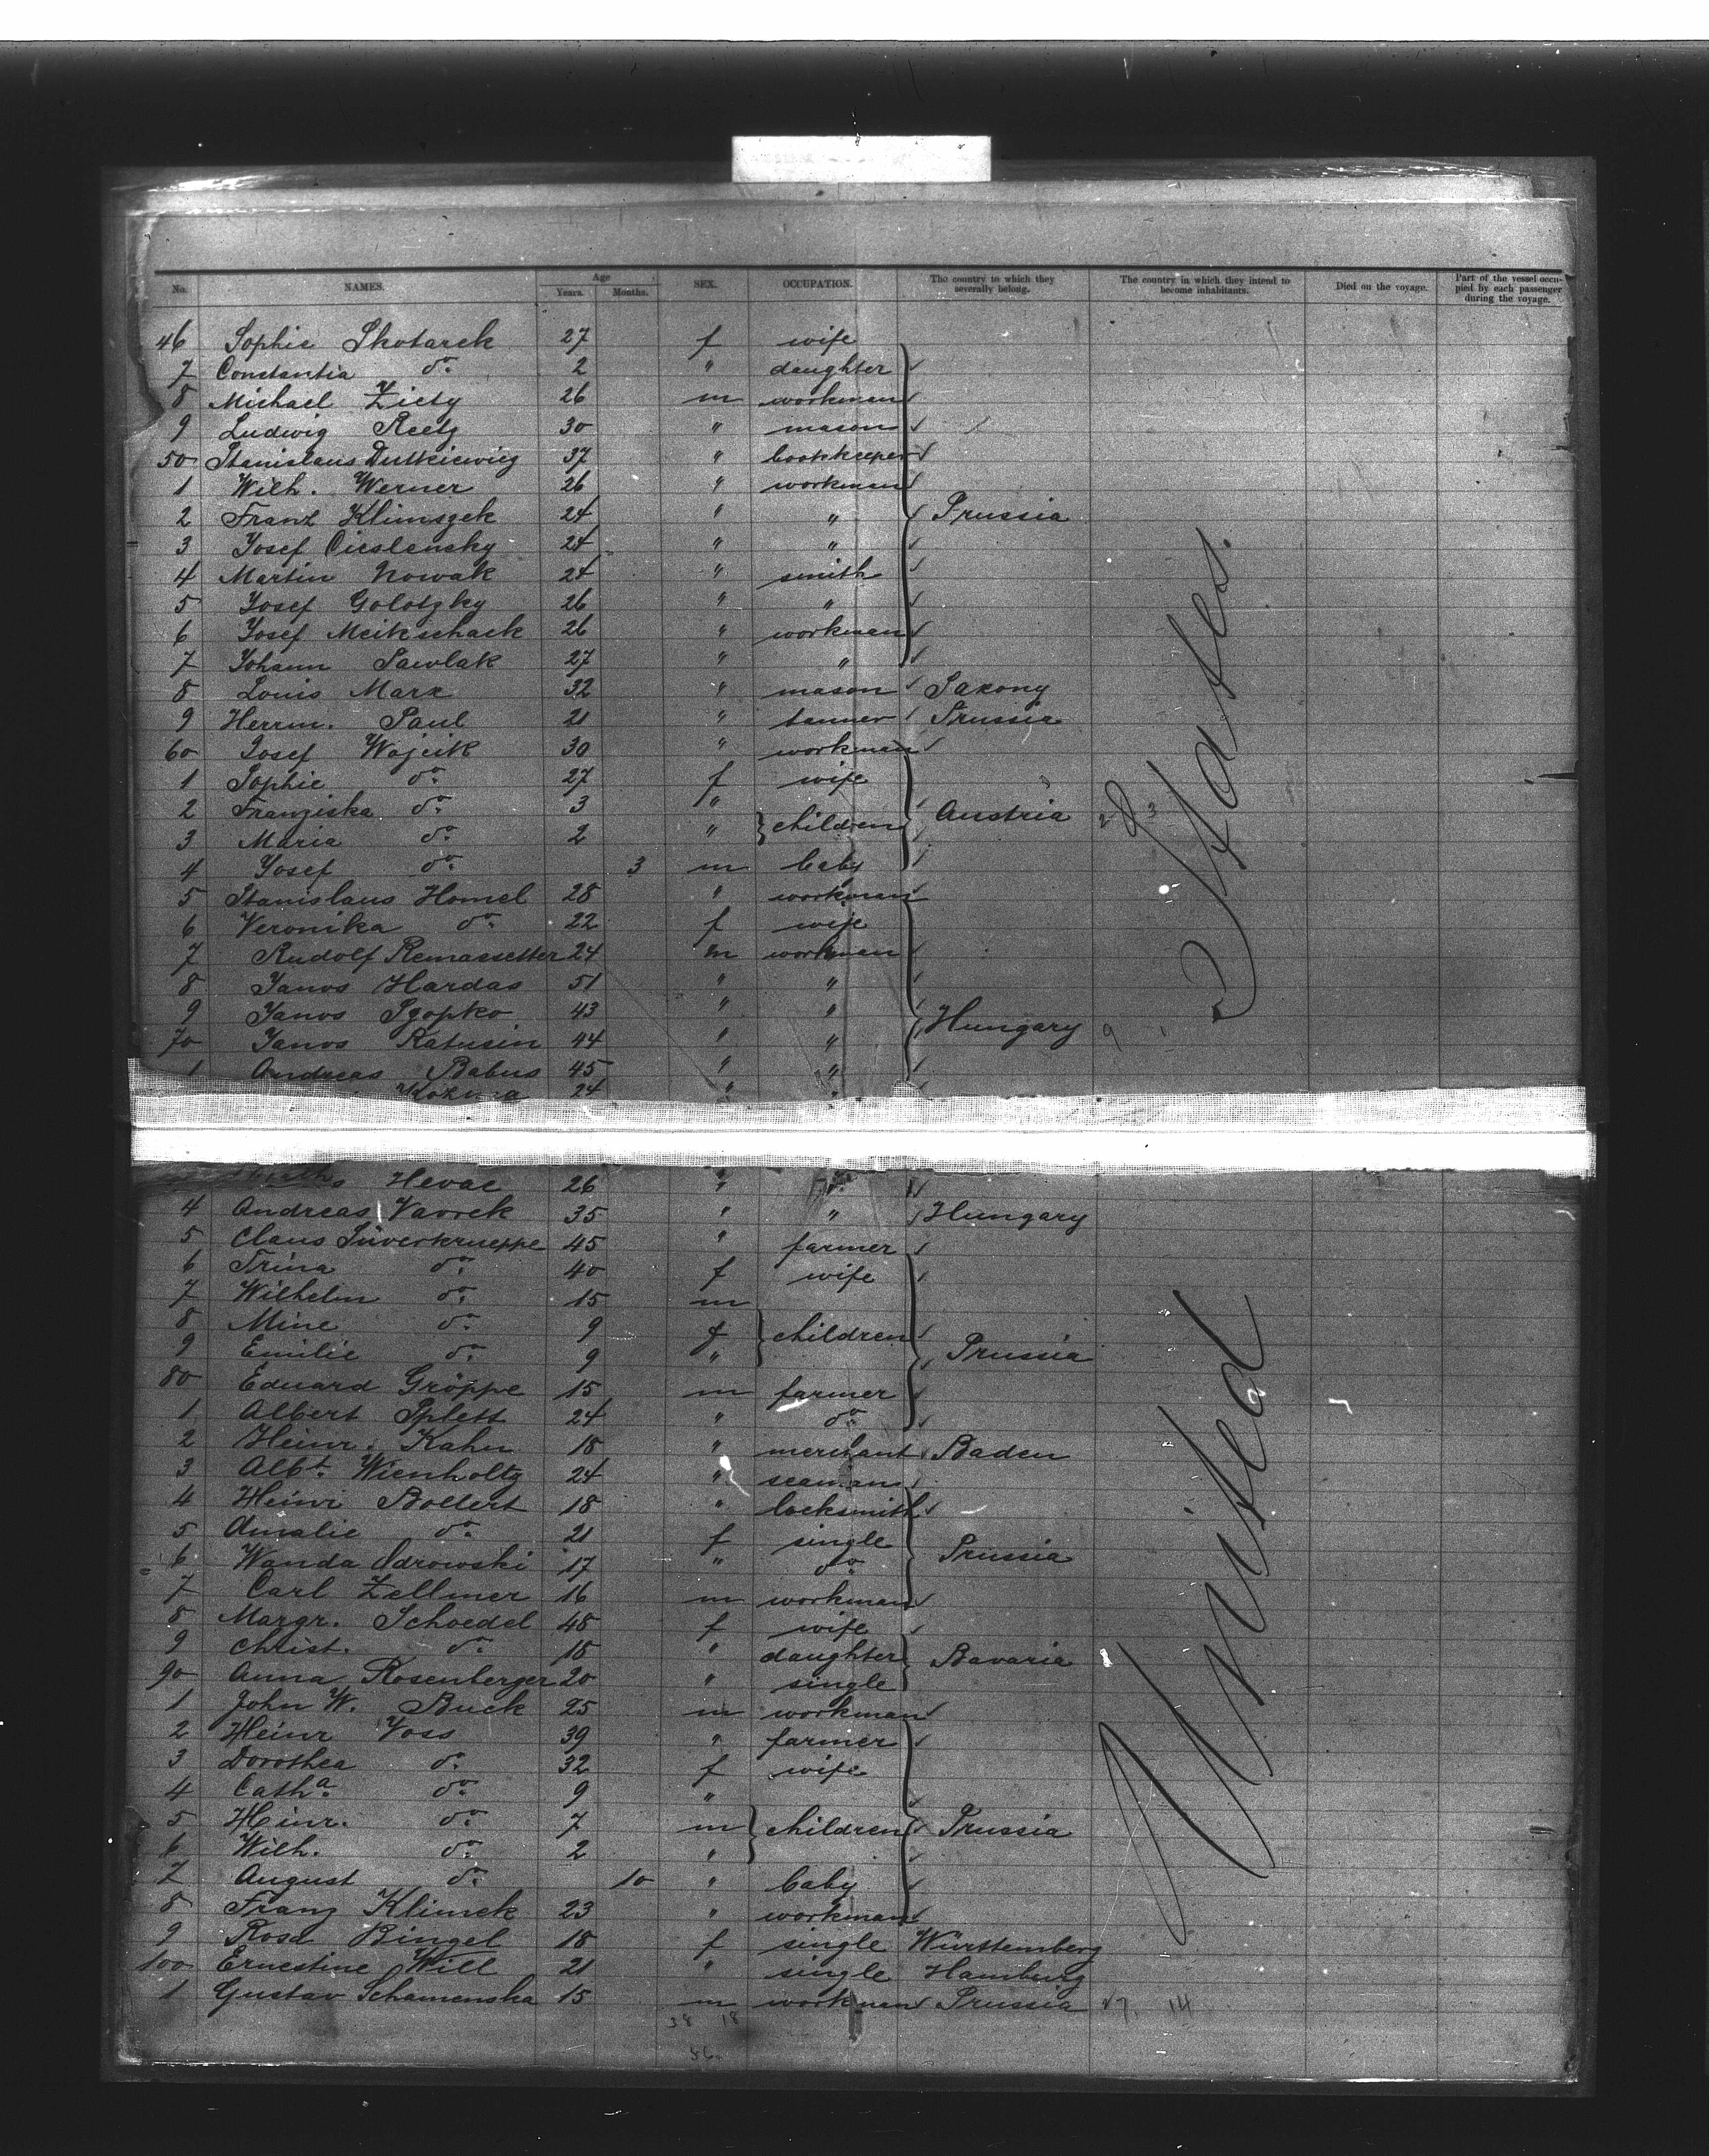 No. NAMES. Age Years. Months. SEX. OCCUPATION. The country to which they severally belong. The country in which they intend to become inhabitants. Died on the voyage. Part of the vessel occupied by each passenger during the voyage.
46 Sophie Skotarek 27 f wife
7 Constantia do. 2 " daughter
8 Michael Ziety 26 m workman
9 Ludwig Reetz 30 " mason
50 Stanislaus Dutkiewicz 37 " bookkeeper
1 Wilh. Werner 26 " workman
2 Franz Klimszek 24 " " Prussia
3 Josef Cieslensky 24 " "
4 Martin Nowak 24 " smith
5 Josef Golotzky 26 " "
6 Josef Meikschack 26 " workman
7 Johann Pawlak 27 " "
8 Louis Marx 32 " mason Saxony
9 Herrm. Paul 21 " tanner Prussia
60 Josef Wojcik 30 " workman
1 Sophie do. 27 f wife
2 Franziska do. 3 " children Austria
3 Maria do. 2 "
4 Josef do. 3 m baby
5 Stanislaus Homel 28 " workman
6 Veronika do. 22 f wife
7 Rudolf Remassetter 24 m workman
8 Janos Hardas 51 " "
9 Janos Szopko 43 " "
70 Janos Ratusin 44 " " Hungary
1 Andreas Babus 45 " "
24 "
Hevac 26 " "
4 Andreas Vavrek 35 " " Hungary
5 Claus Süverkrueppe 45 " farmer
6 Trina do. 40 f wife
7 Wilhelm do. 15 m
8 Mine do. 9 f children
9 Emilie do. 9 " Prussia
80 Eduard Gröppe 15 m farmer
1 Albert Splett 24 " do.
2 Heinr. Kahn 18 " merchant Baden
3 Albt. Wienholtz 24 " seaman
4 Heinr Bollert 18 " locksmith
5 Amalie do. 21 f single
6 Wanda Odrowski 17 " do. Prussia
7 Carl Zellmer 16 m workman
8 Margr. Schoedel 48 f wife
9 Christ. do. 18 " daughter Bavaria
90 Anna Rosenberger 20 " single
1 John W. Buck 25 m workman
2 Heinr Voss 39 " farmer
3 Dorothea do. 32 f wife
4 Catha. do. 9 "
5 Heinr. do. 7 m children Prussia
6 Wilh. do. 2 "
7 August do. 10 " baby
8 Franz Klimek 23 " workman
9 Rosa Bingel 18 f single Württemberg
100 Ernestine Will 21 " single Hamburg
1 Gustav Schamenska 15 m workman Prussia
United States.